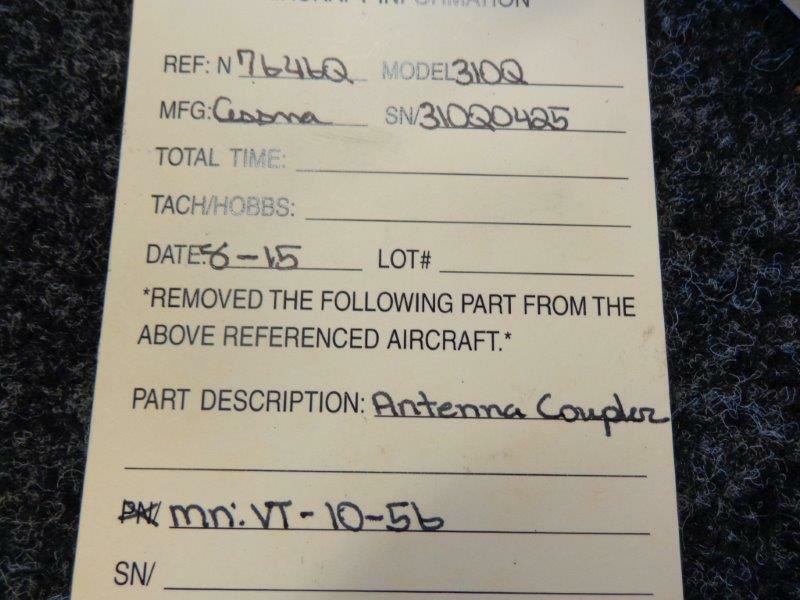 AIRCRAFT INFORMATION
REF: N 7646Q MODEL 310Q
MFG: Cessna SN/ 310Q0425
TOTAL TIME:
TACH/HOBBS:
DATE: 8-15 LOT#
*REMOVED THE FOLLOWING PART FROM THE
ABOVE REFERENCED AIRCRAFT.*
PART DESCRIPTION: Antenna Coupler
PN/ mn: VT-10-56
SN/